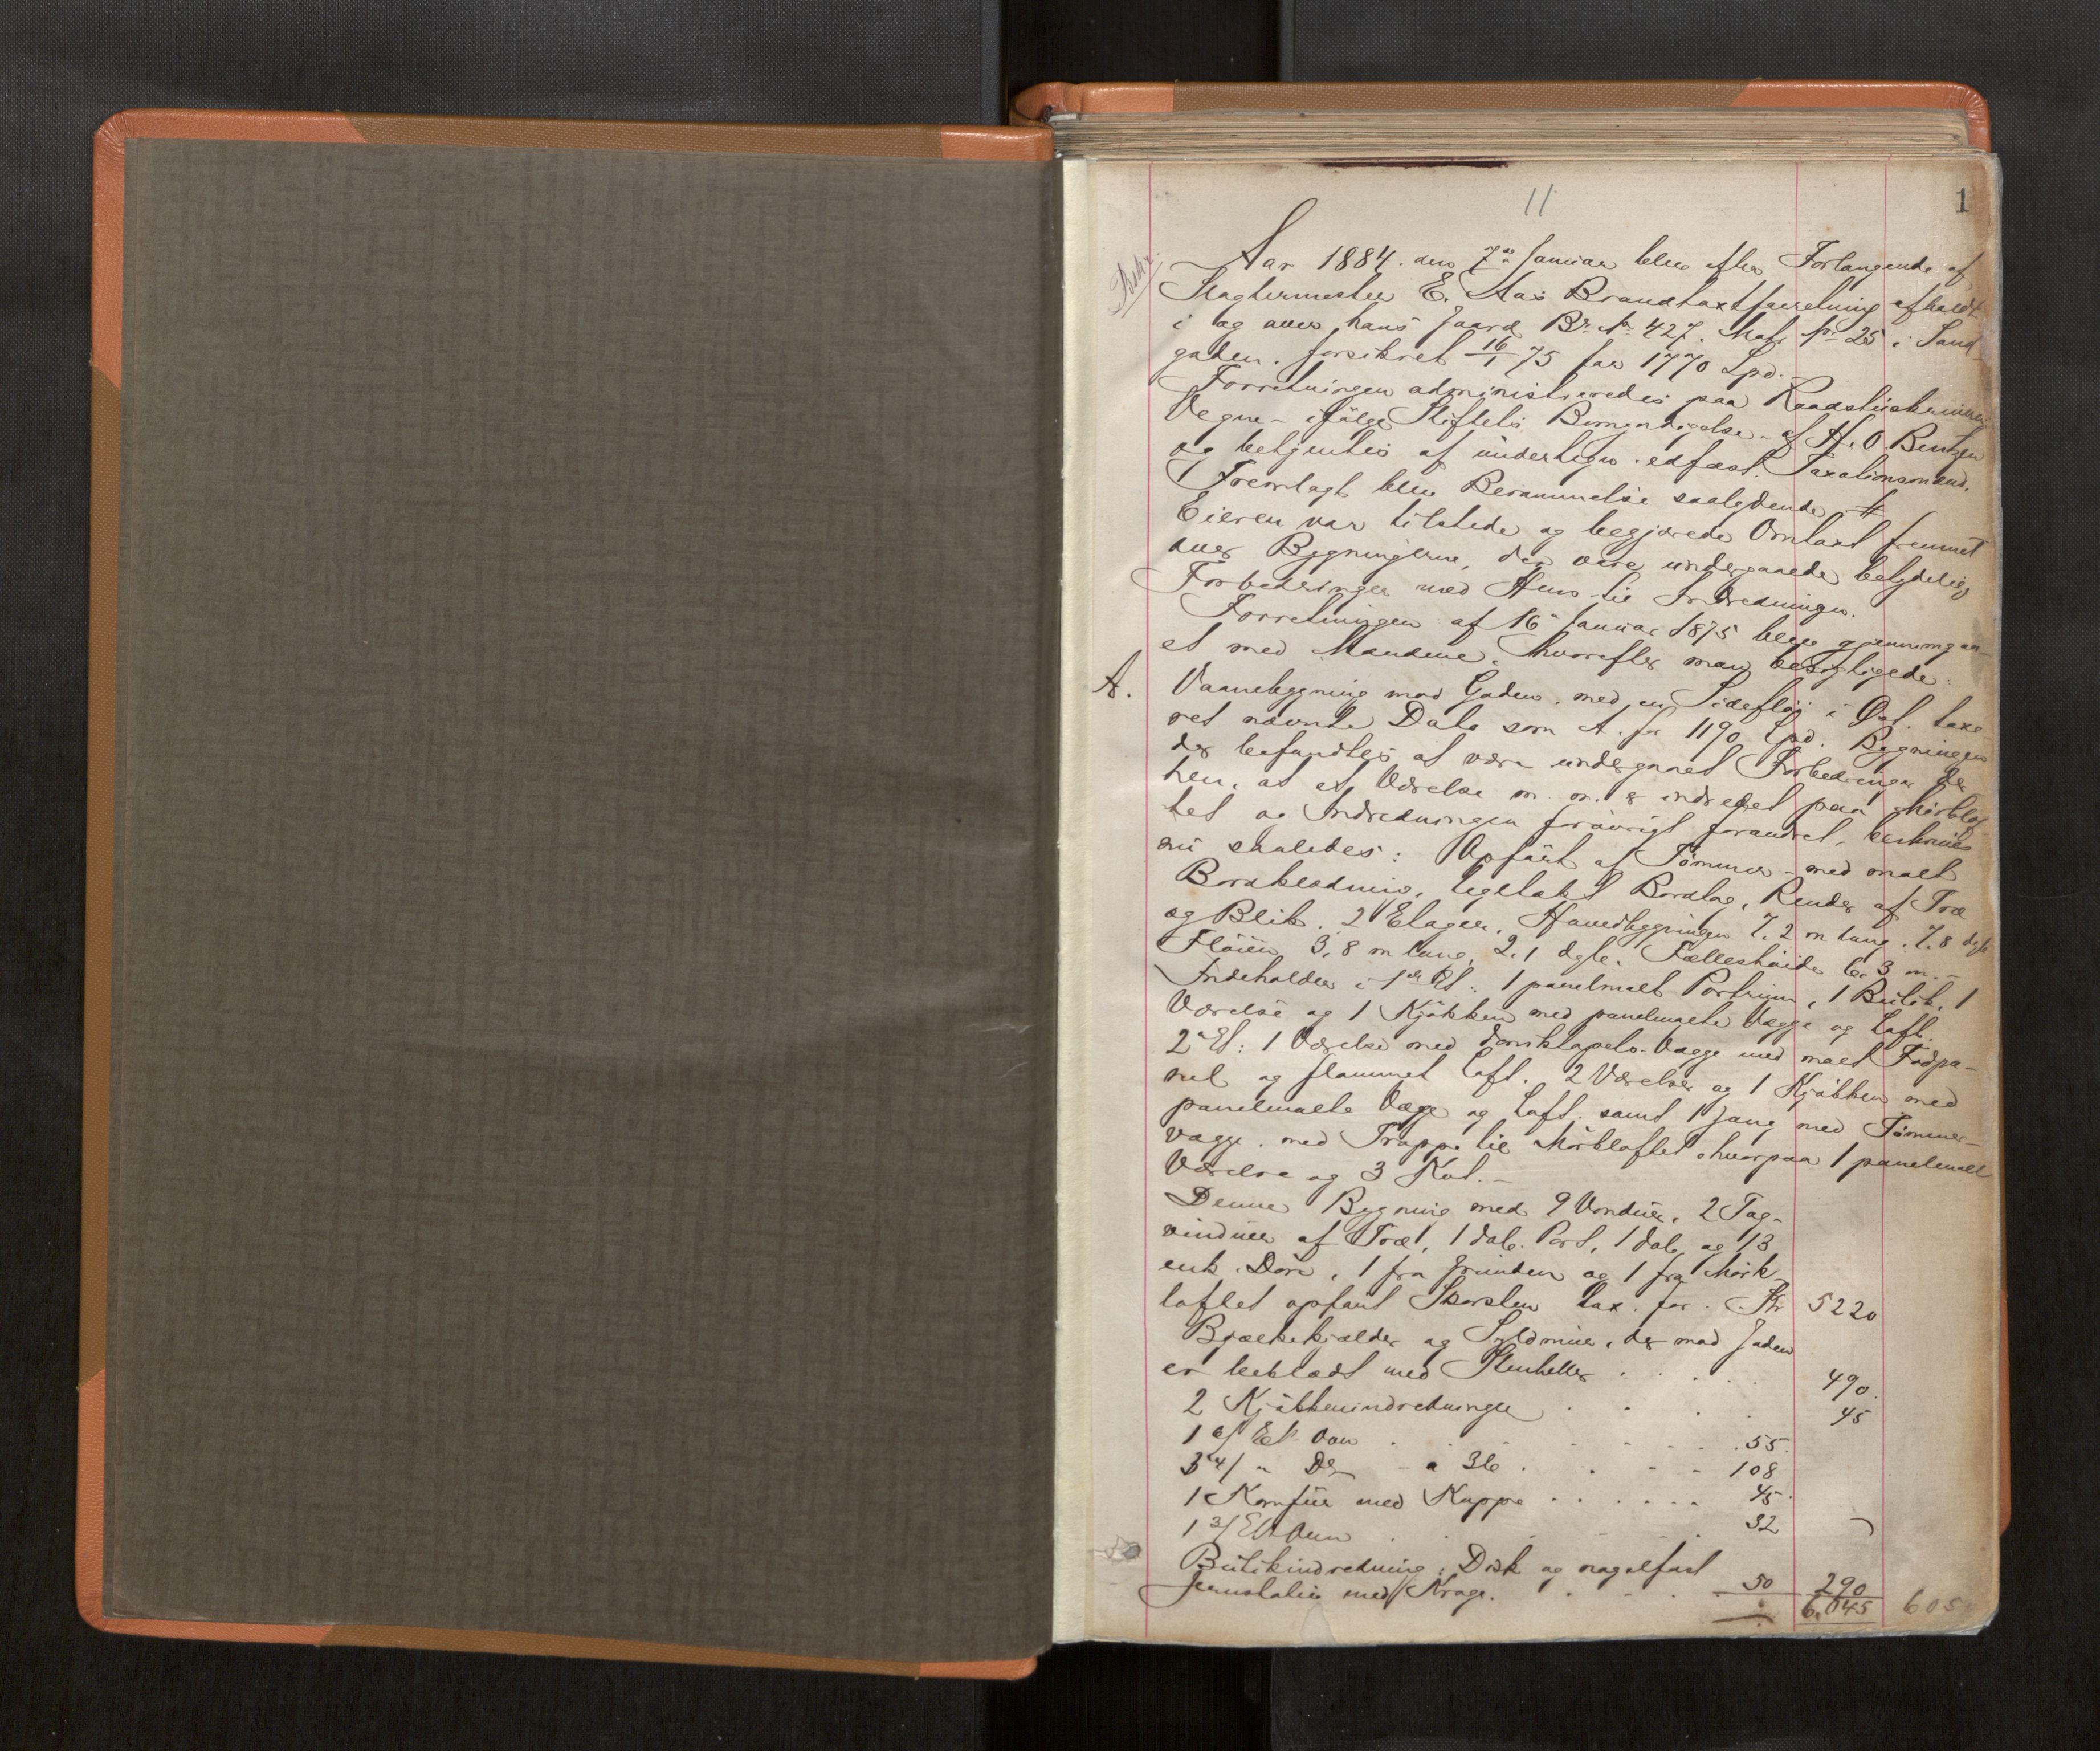 11
1
Beskr.
Aar 1884 den 7de Januar blev efter Forlangende af
Slagtermester E. Aas Brandtaxtforretning afholdt
i og over hans Gaard Br. No 427. Matr No 25 i Sand-
gaden. forsikret 16/1 75 for 1770 Spd.
Forretningen administreredes paa Raadstueskriverens
Vegne - ifölge Stiftets Bemyndigelse - af H. O. Bentzen
og betjentes af undertegn. edfæst. Taxationsmænd.
Fremlagt blev Berammelse saalydende #
Eieren var tilstede og begjærede Omtaxt fremmet
over Bygningerne, der vare undergaaede betydelig
Forbedringer med Hens. til Indredningen.
Forretningen af 16de Januar 1875 blev gjennemgaa-
et med Mændene, hvorefter man besigtigede:
A. Vaanebygning mod Gaden med en Sidefløi i Øst. taxe-
ret nævnte Dato som A. for 1190 Spd. Bygningen
der befandtes at være undergaaet Forbedringer der-
hen, at et Værelse m. m. er indredet paa Mörklof-
tet og Indredningen forövrigt forandret, beskrives
nu saaledes: Opfört af Tömmer - med malt
Bordklædning, tegllakt Bordtag, Render af Træ
og Blik. 2 Etager. Hovedbygningen 7,2 m lang. 7,8 dyb
Flöien 3,8 m lang, 2,1 dybe. Fælleshöide 6,3 m.-
Indeholder i 1ste Et: 1 panelmalt Portrum, 1 Butik, 1
Værelse og 1 Kjökken med panelmalte Vægge og Loft.
2den Et: 1 Værelse med Vægge med malt Fodpa-
nel og flammet Loft. 2 Værelser og 1 Kjökken med
panelmalte Vægge og Loft. samt 1 Gang med Tömmer-
vægge. med Trappe til Mörkloftet, hvorpaa 1 panelmalt
Værelse og 3 Kot.-
Denne Bygning med 9 Vinduer, 2 Tag-
vinduer af Træ, 1 dob. Port, 1 dob. og 13
enk. Döre, 1 fra Grunden og 1 fra Mörk-
loftet opfört Skorsten tax. for . Kr 5220
Bjælkekjælder og Syldmur, der mod Gaden
er beklædt med Stenheller . . . . 490.
2 Kjökkenindredninger . . . . 45
1 Et. Ovn . . . . 55.
3 4/ " Do - a 36 . . . . 108
1 Komfur med Kappe . . . . 45.
1 3/ Et. Ovn . . . . 32
Butikindredning: Disk og nagelfast
Jernstativ med Kroge. . . . 50 290
6,045 605